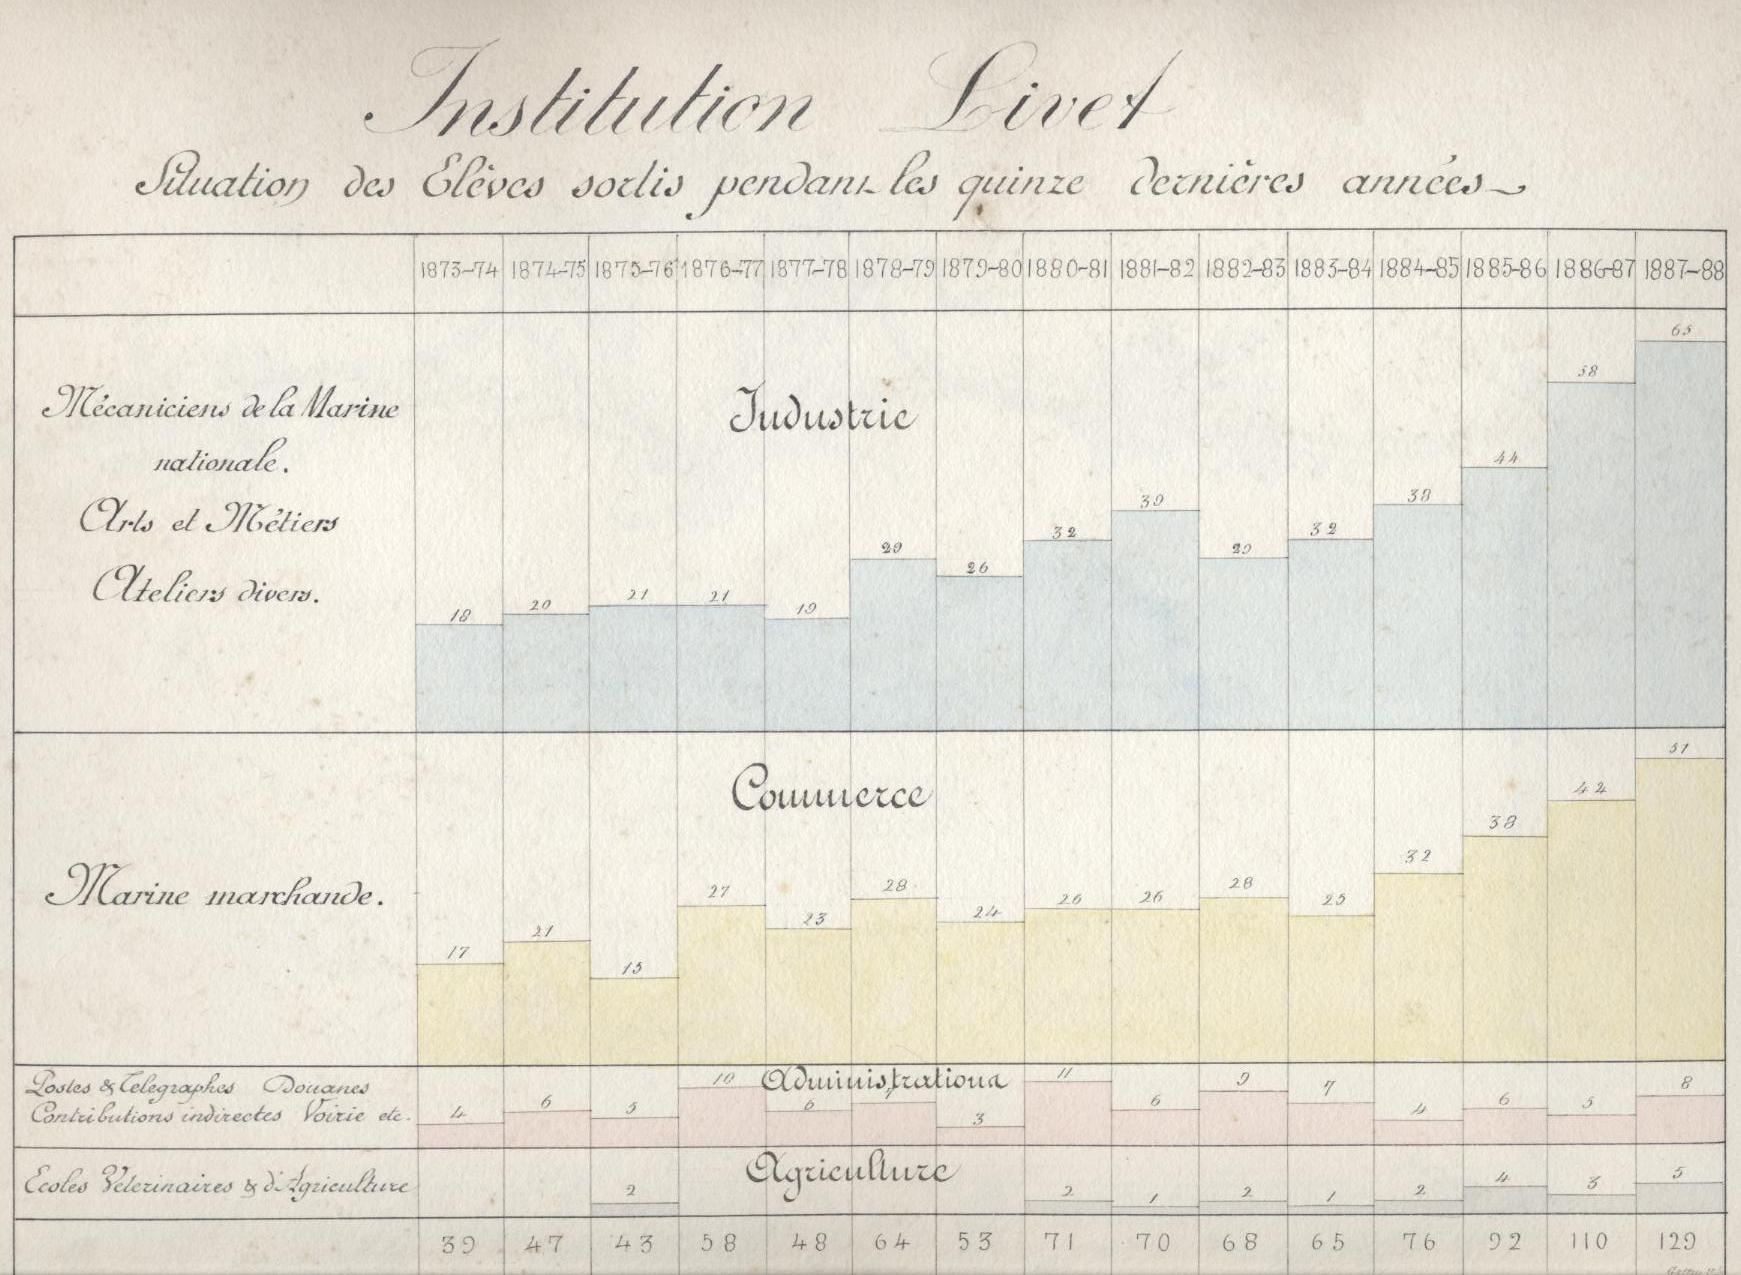 Institution Livet
Situation des Elèves sortis pendant les quinze dernières années
1873-74 1874-75 1875-76 1876-77 1877-78 1878-79 1879-80 1880-81 1881-82 1882-83 1883-84 1884-85 1885-86 1886-87 1887-88
Mécaniciens de la Marine
nationale.
Arts et Métiers
Ateliers divers.
Industrie
18 20 21 21 19 29 26 32 39 29 32 38 44 58 65
Marine marchande.
Commerce
17 21 15 27 23 28 24 26 26 28 25 32 38 42 51
Postes & Télégraphes Douanes
Contributions indirectes Voirie etc.
Administrations
4 6 5 10 6 7 3 11 6 9 7 4 6 5 8
Ecoles Vétérinaires & d'Agriculture
Agriculture
2 2 1 2 1 2 4 3 5
39 47 43 58 48 64 53 71 70 68 65 76 92 110 129